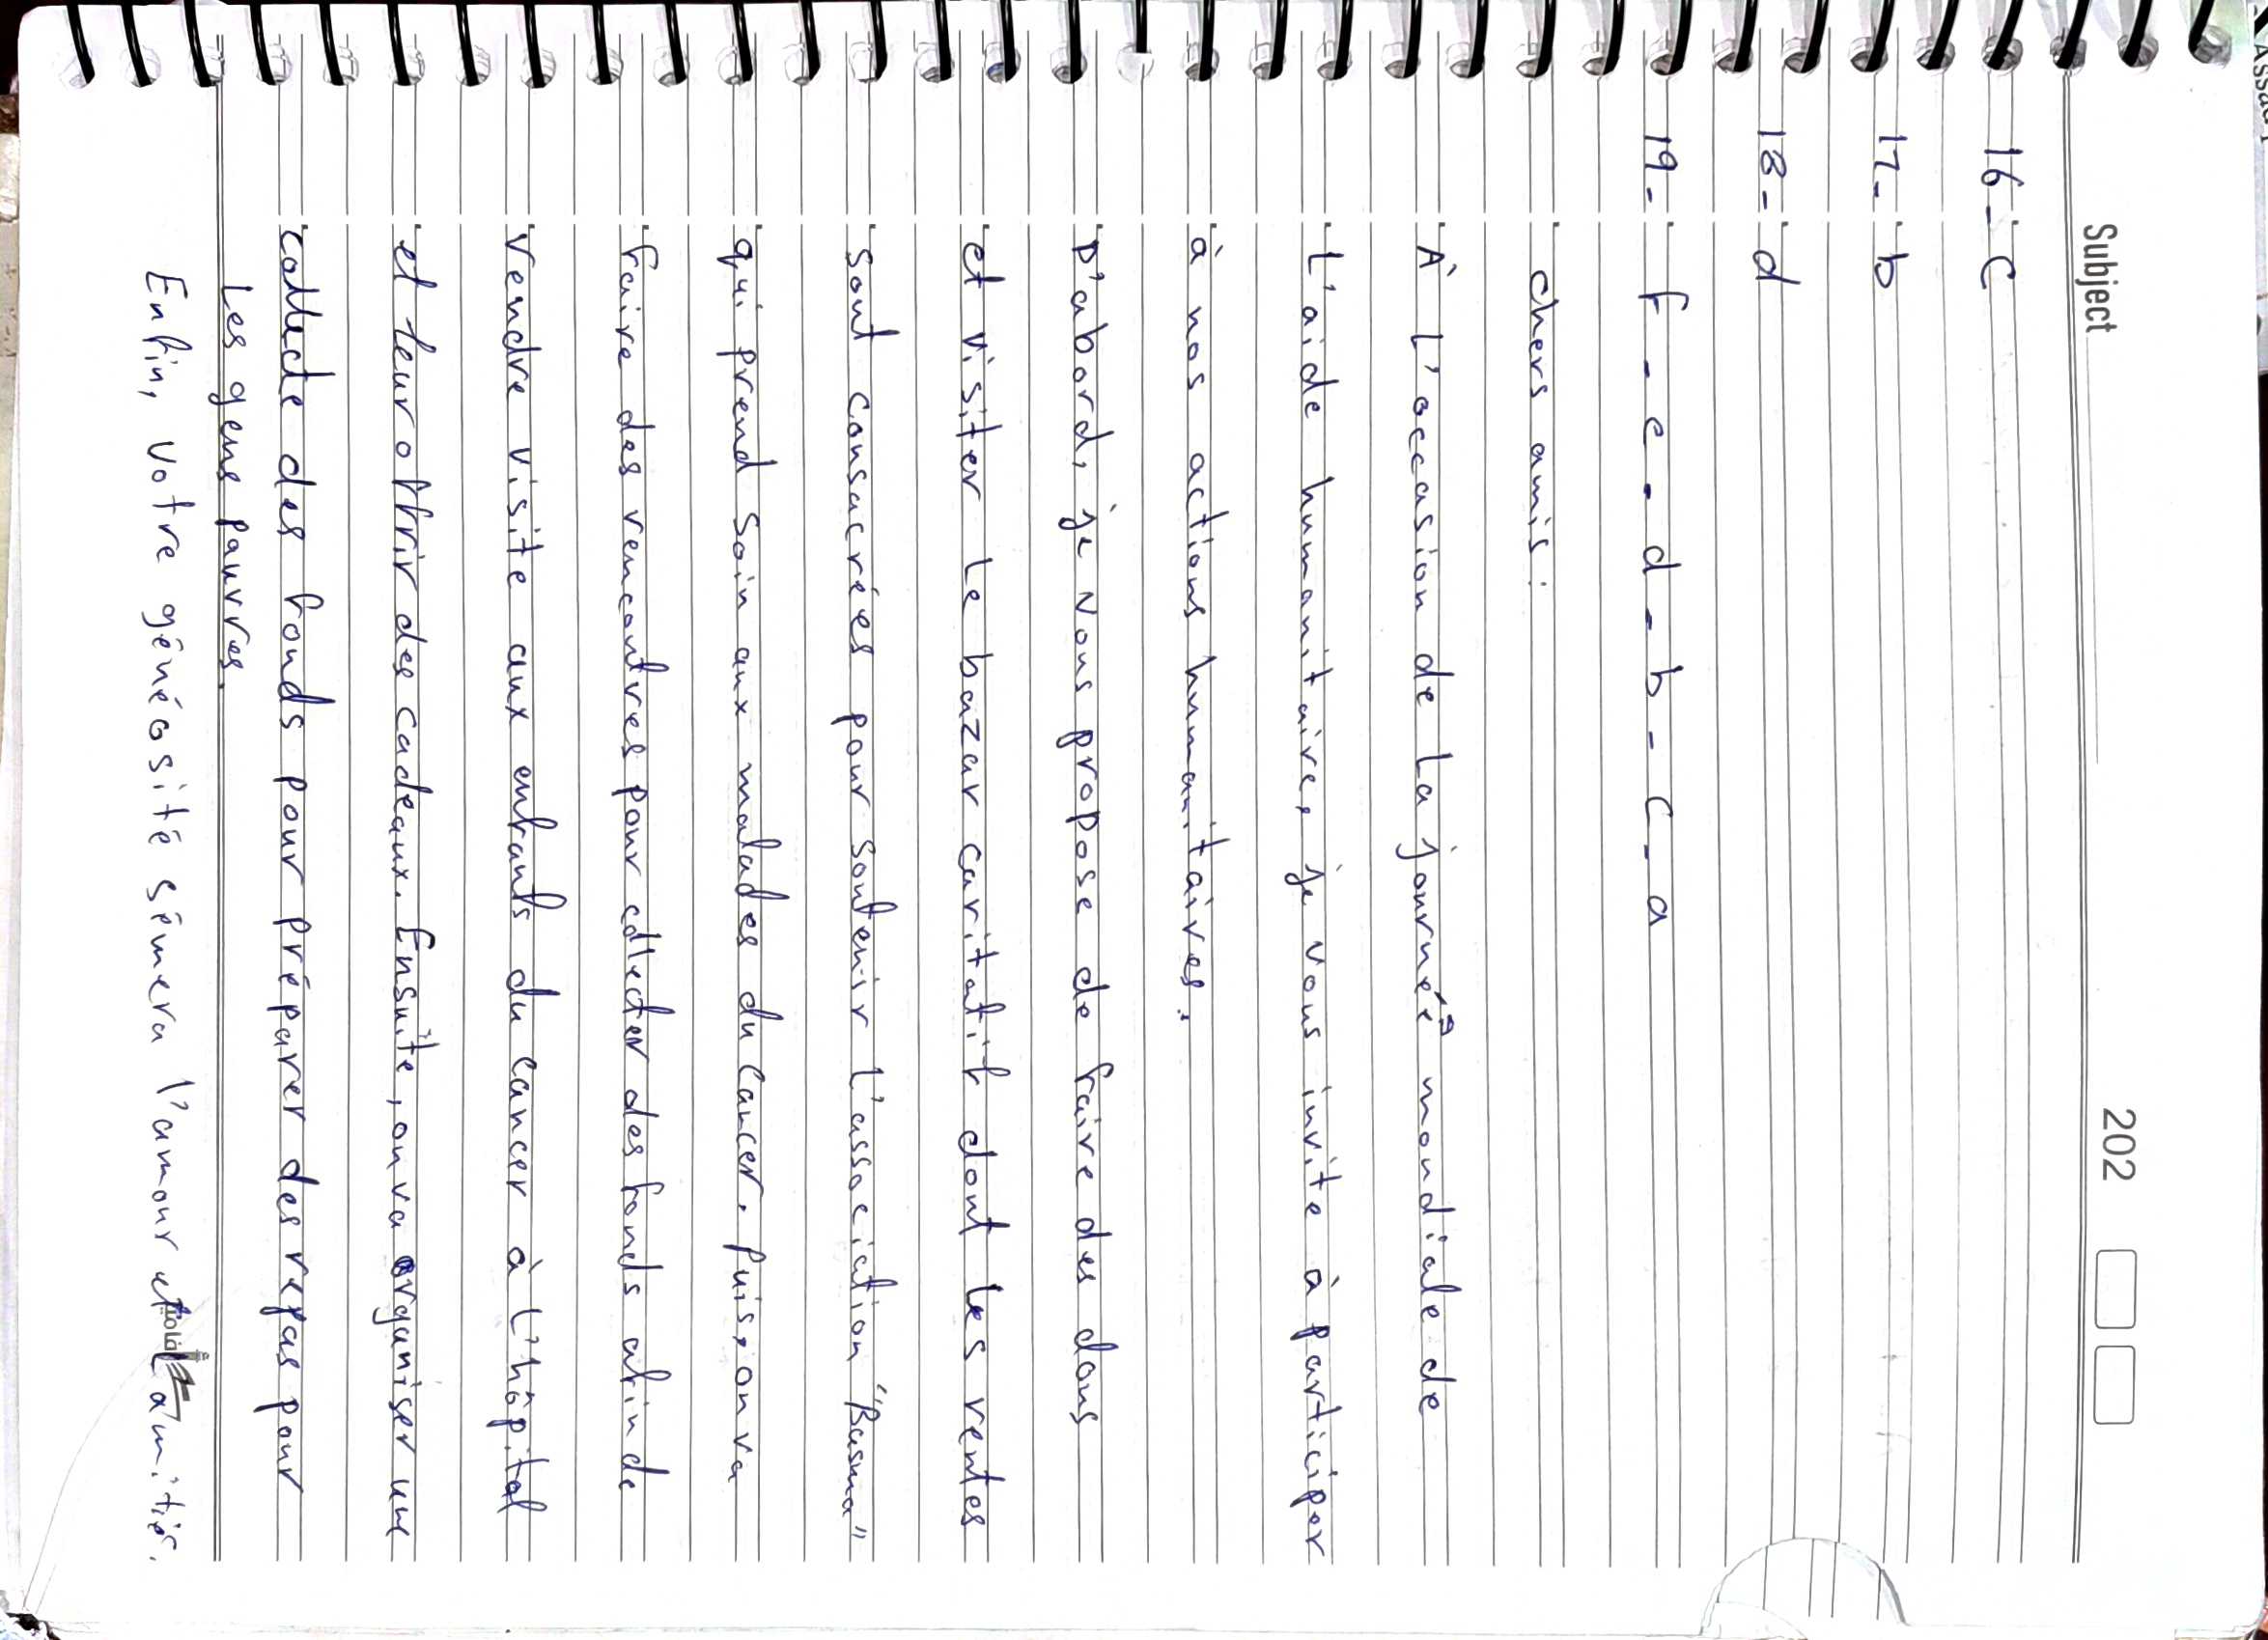 Subject 202
16- C
17- b
18- d
19- f - e - d - b - c - a
chers amis :
À l'occasion de la journée mondiale de
L'aide humanitaire, je vous invite à participer
à nos actions humanitaires.
D'abord, je vous propose de faire des dons
et visiter le bazar caritatif dont les ventes
sont consacrées pour soutenir l'association "Basma"
qui prend soin aux malades du cancer. Puis, on va
faire des rencontres pour collecter des fonds afin de
vendre visite aux enfants du cancer à l'hôpital
et leur offrir des cadeaux. Ensuite, on va organiser une
collecte des fonds pour préparer des repas pour
Les gens pauvres.
Enfin, votre généosité sémera l'amour et L'amitiés.